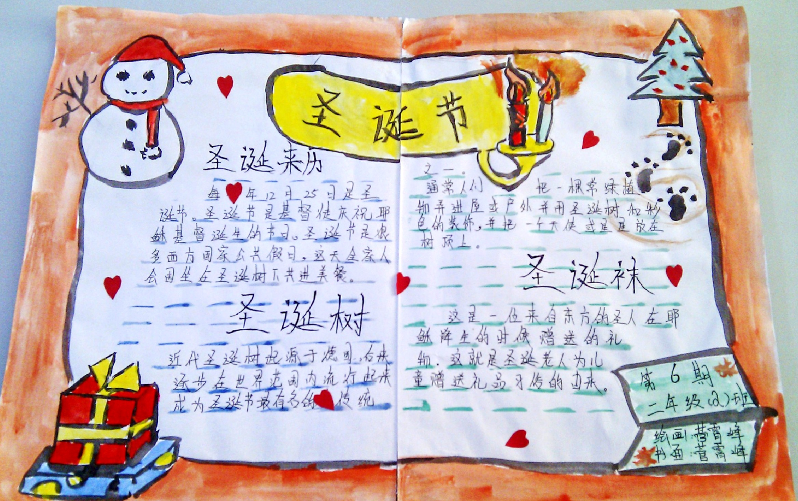 圣诞节
圣诞来历
每年12月25日是圣
诞节。圣诞节是基督徒庆祝耶
稣基督诞生的节日。圣诞节是很
多西方国家公共假日,这天全家人
会团坐在圣诞树下共进美餐。
圣诞树
近代圣诞树起源于德国,后来
逐步在世界范围内流行起来
成为圣诞节最有名的传统
之一。
通常人们 把一棵常绿植
物弄进屋或户外并用圣诞树和彩
色的装饰,并把一个天使或星星放在
树顶上。
圣诞袜
这是一位来自东方的圣人在耶
稣降生的时候赠送的礼
物,这就是圣诞老人为儿
童赠送礼品习俗的由来。
第6期
二年级(3)班
绘画:
书画: